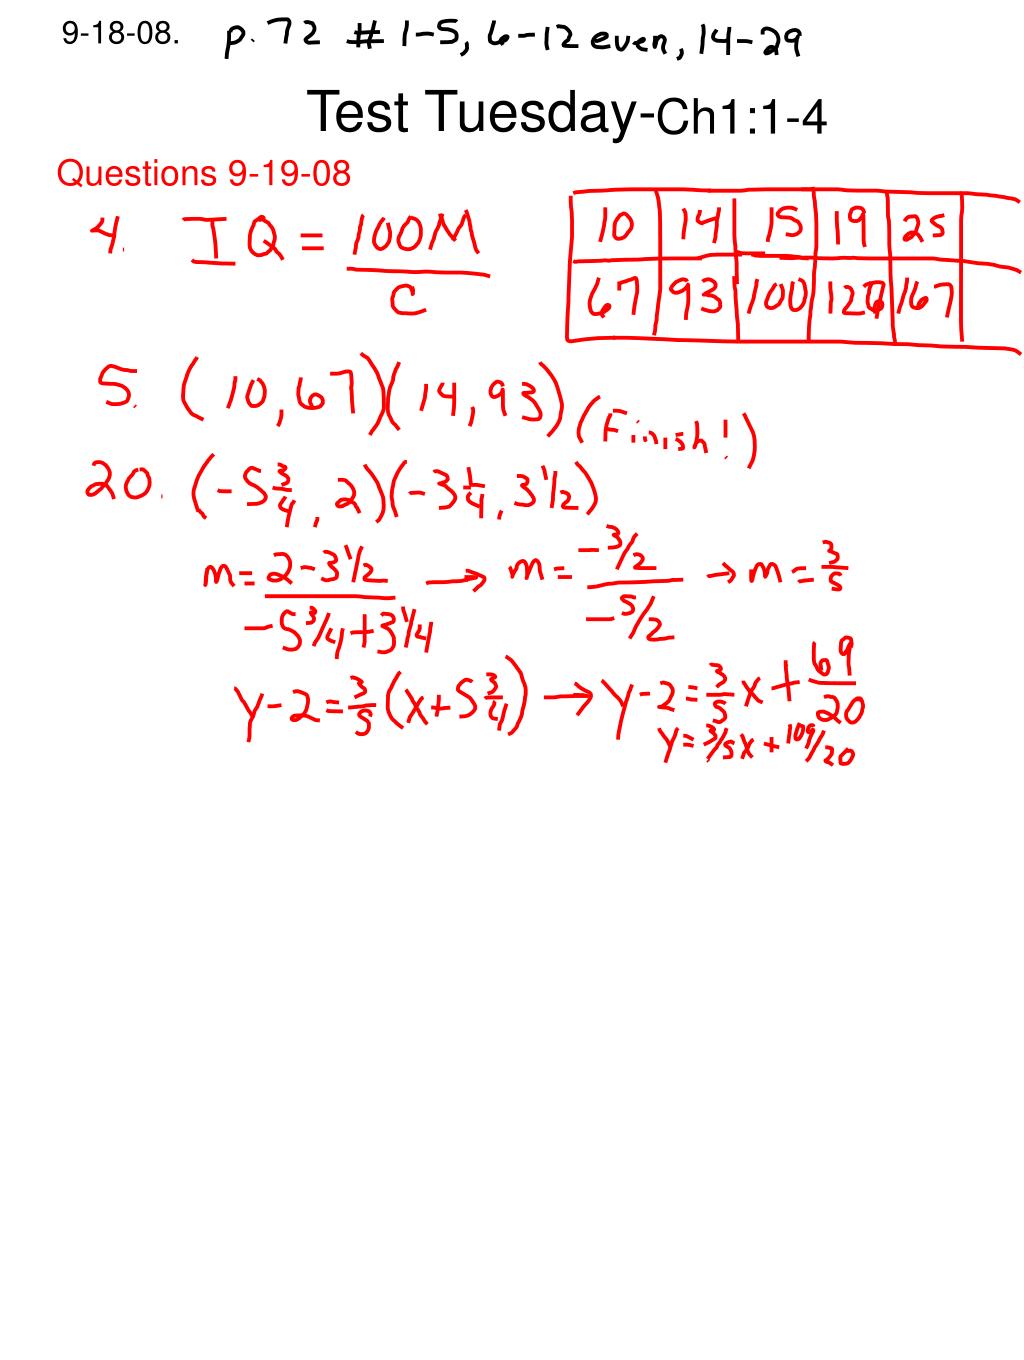 9-18-08. p. 72 # 1-5, 6-12 even, 14-29
Test Tuesday-Ch1:1-4
Questions 9-19-08
4. IQ = 100M / C
10 14 15 19 25
67 93 100 167
5. (10,67)(14,93) (Finish!)
20. (-5 3/4, 2)(-3 1/4, 3 1/2)
m = 2-3 1/2 / -5 3/4+3 1/4 → m = -3/2 / -5/2 → m = 3/5
y-2=3/5(x+5 3/4) → y-2=3/5x+69/20
y=3/5x+109/20